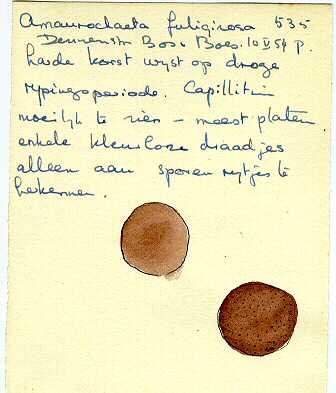 Amaurochaeta fuliginosa 535
Dennenstr Bosv Boeo. 10 V 54 P.
harde korst wyst op droge
rypingsperiode. Capillitium
moeilyk te zien - meest platen
enkele kleurloze draadjes
alleen aan sporenrytjes te
herkennen.